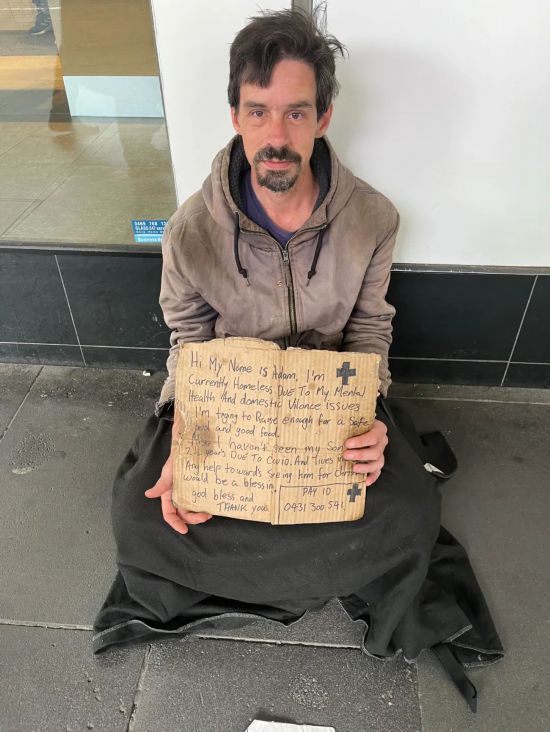 0469 788
GLASS 24/7
Business
Hi My Name Is Adam, I'm
Currently Homeless Due To My Mental
Health And domestic Vilonce issues
I'm trying to Raise enough for a Safe
bed and good food.
Also I haven't seen my Son
2 years Due To Covid. And lives in
Any help towards Seeing him for
would be a blessing
god bless and
THANK you.
PAY ID
0431 300 541.